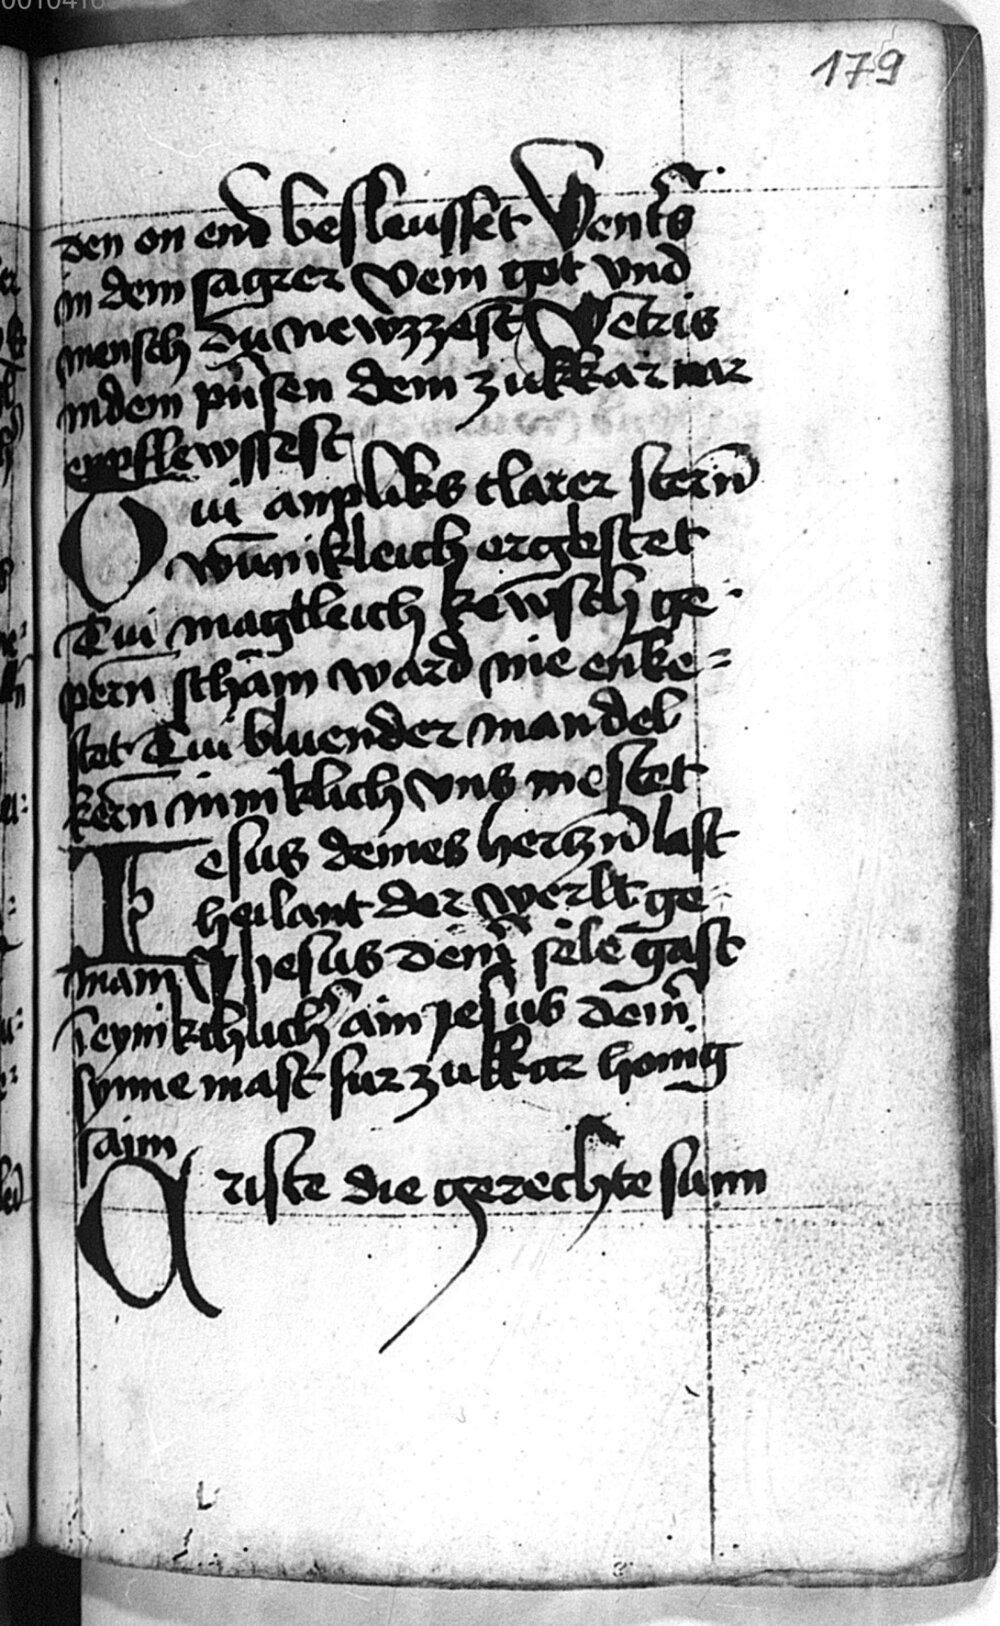 0010416
179
den on end besleusset Ventris
in dem sagrer Vein got vnd
mensch du newzzest Ventris
indem pusen dem zukkar nar
empflewssest
O ui anpliks clarer stern̄
wūnikleich ergleſtet
Tui magtleich kewsch ge
pern̄ scham ward nie enke=
stet Tui bluender mandel
kern̄ minniklich vns mestet
Iesus deines hertzn̄ last
heilant der werlt ge
nam Jhesus dein̄ sele gast
ain Jesus dein̄
synne mast fur zukkar honig
saim
A riste die gerechte sunn